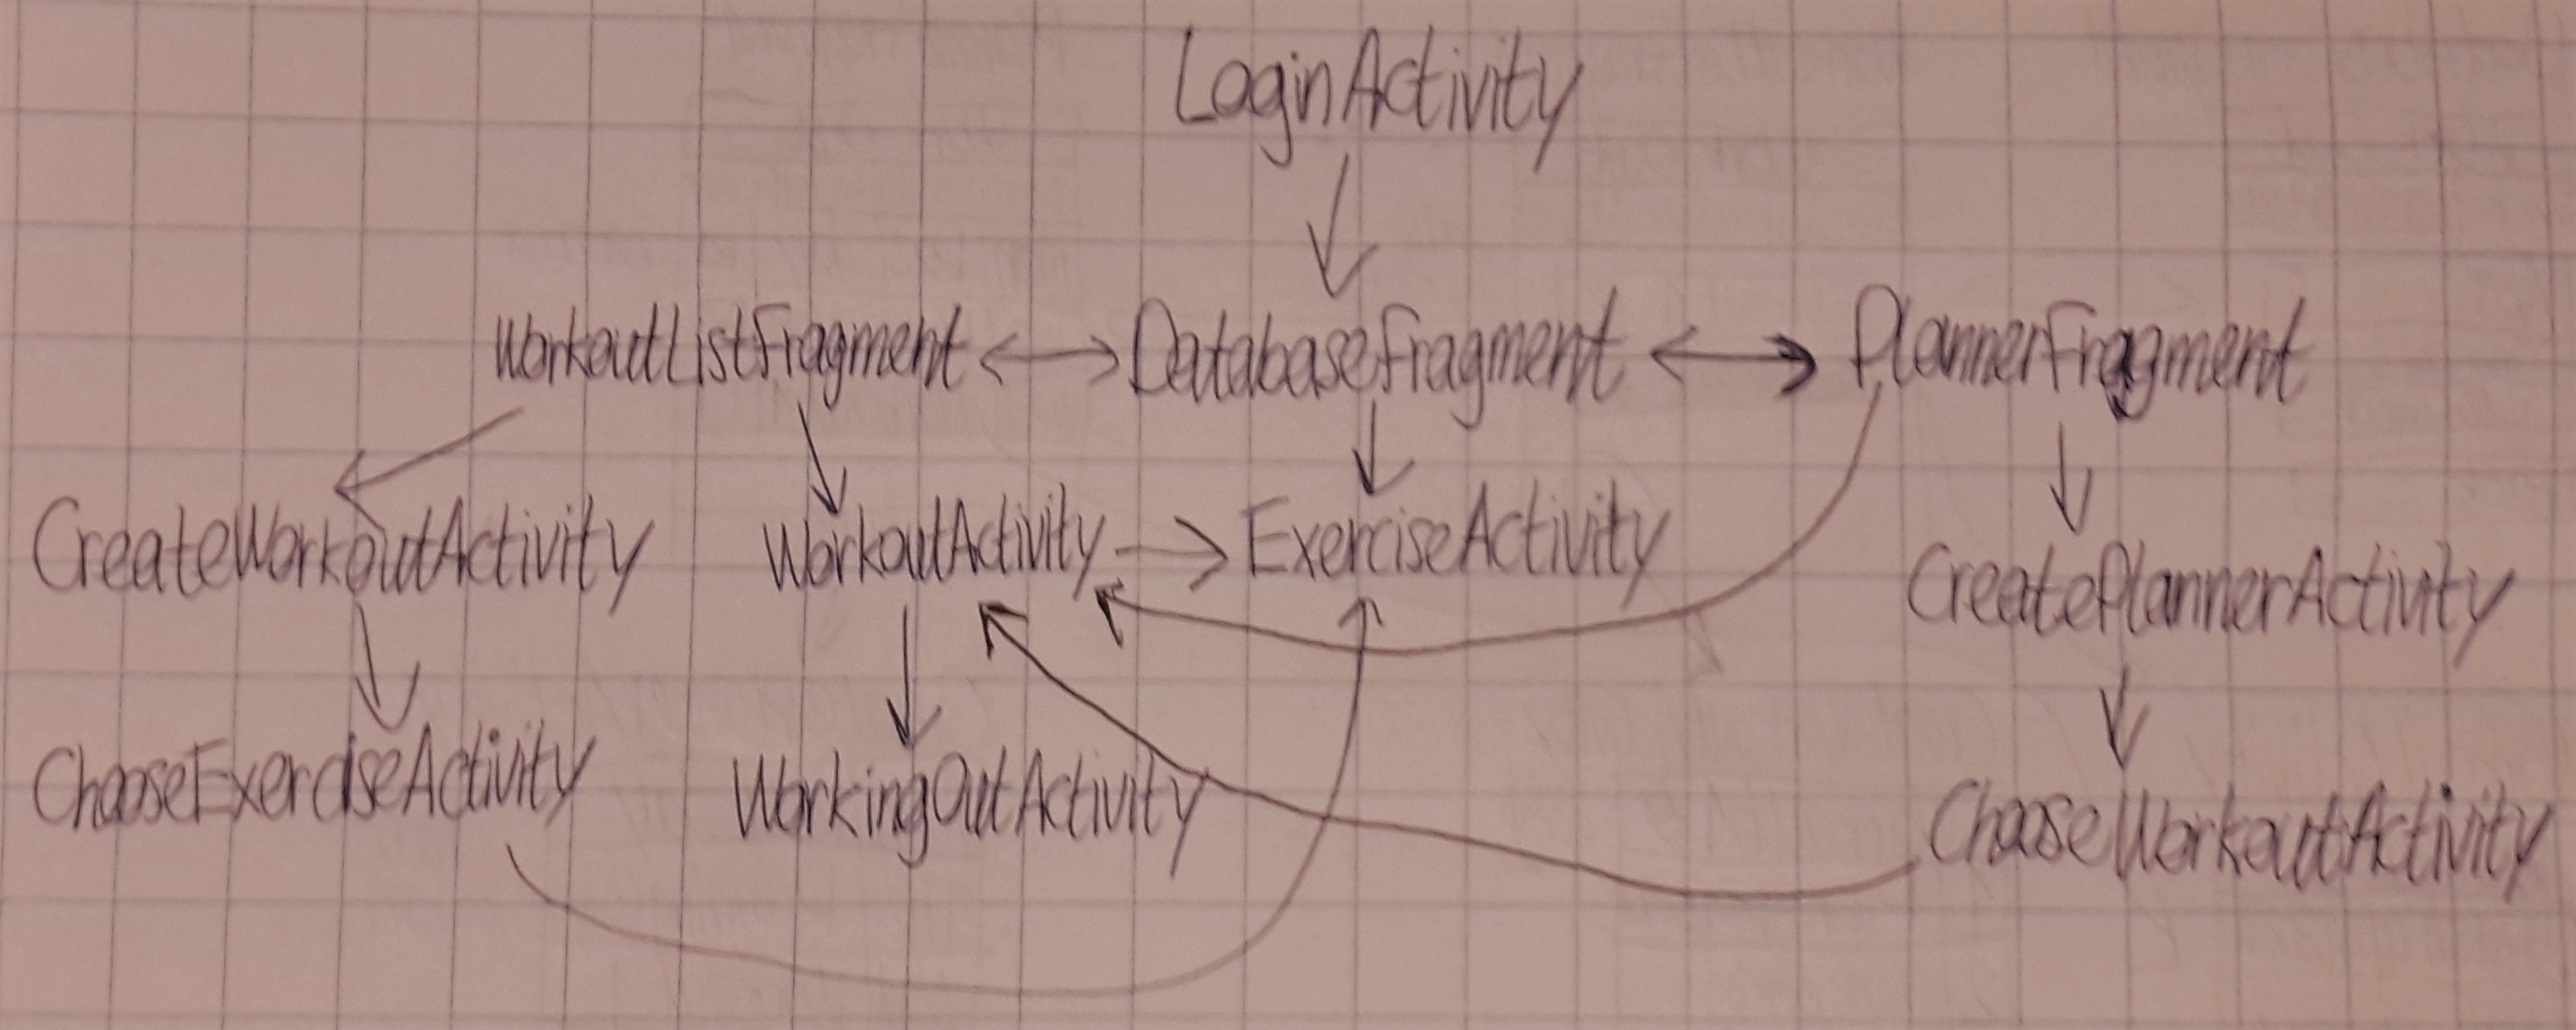 LoginActivity
WorkoutListFragment DatabaseFragment PlannerFragment
CreateWorkoutActivity WorkoutActivity ExerciseActivity CreatePlannerActivity
ChooseExerciseActivity WorkingOutActivity ChooseWorkoutActivity